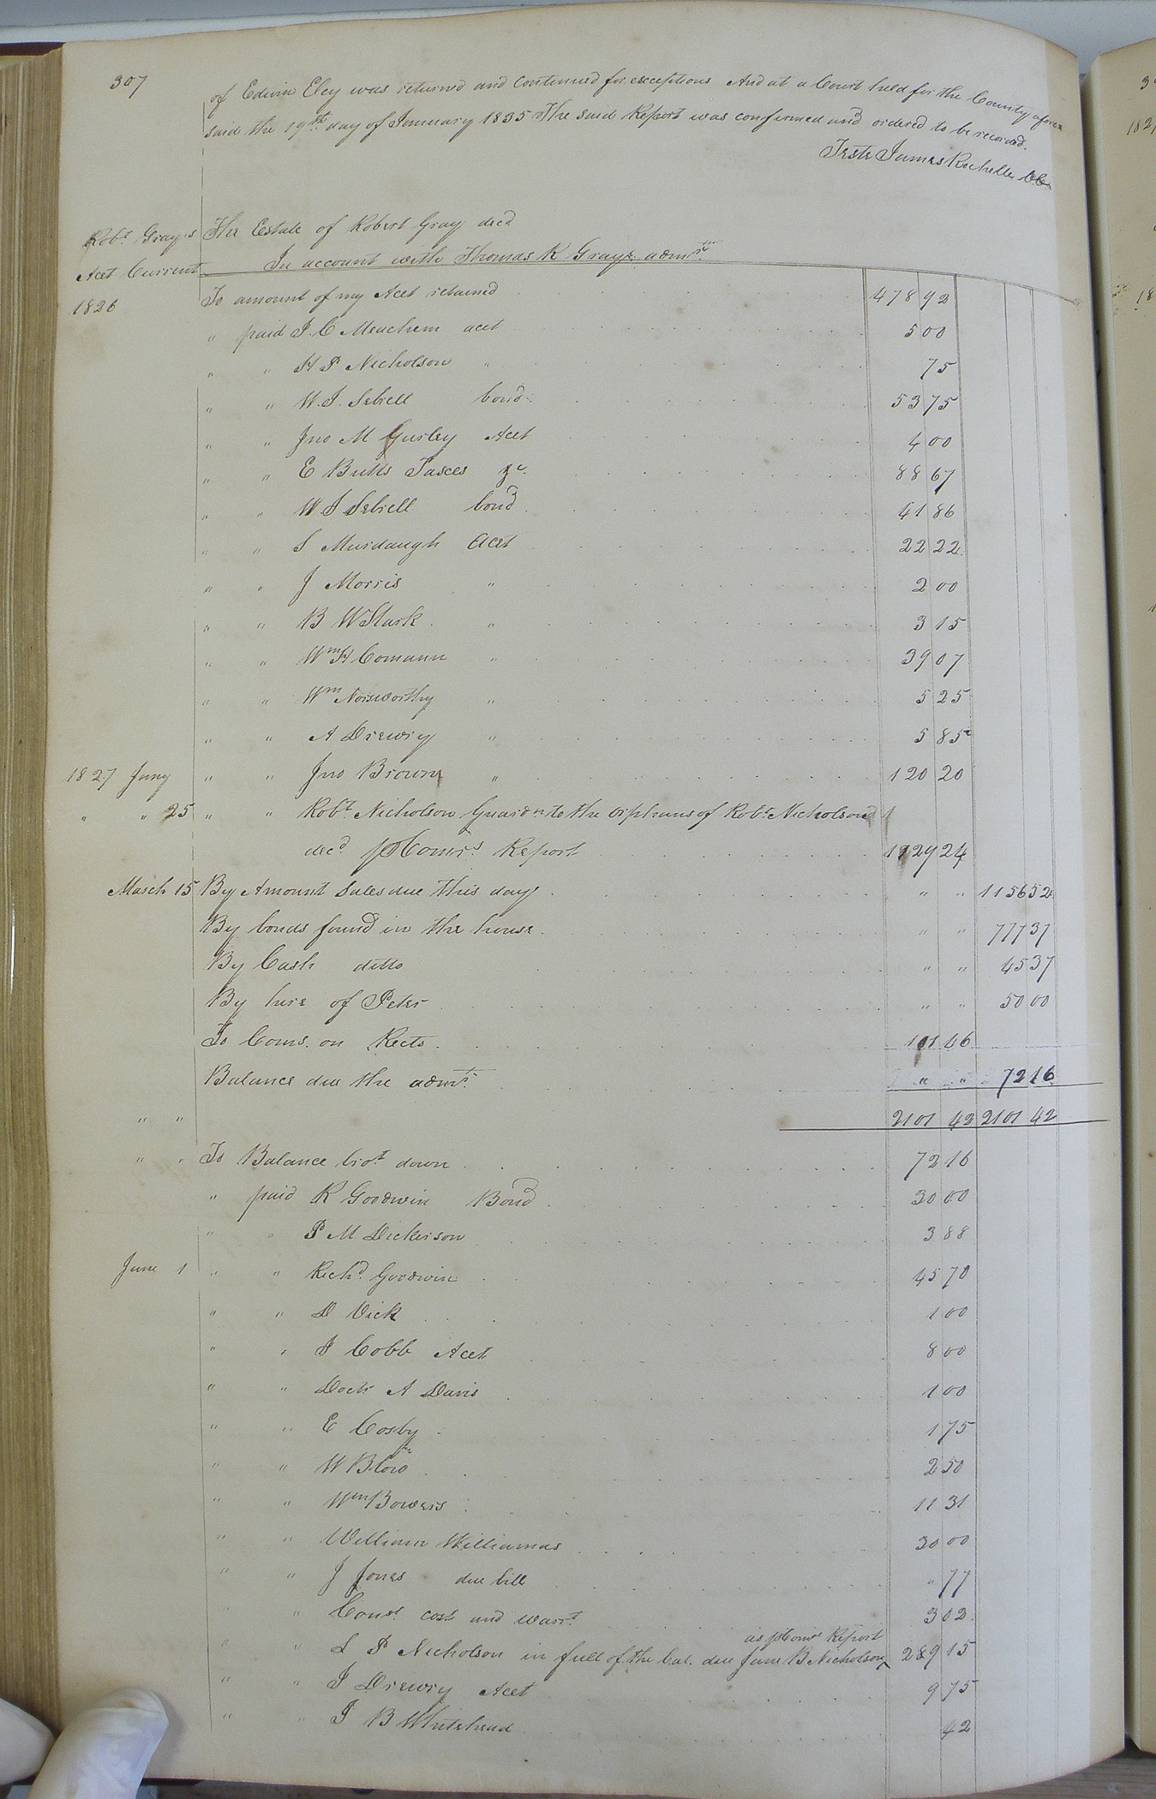 307
of Edwin Eley was returned and continued for exceptions And at a Court held for the County afore
said the 19th day of January 1835 The said Report was confirmed and ordered to be recorded.
Teste James Rochelle
Robt Gray's The Estate of Robert Gray decd
Acct Current In account with Thomas K Gray admr
1826 To amount of my Acct returned 478 92
" paid J. C Meachem acct 5 00
" " H P Nicholson " 75
" " W. J. Sebrell bond 53 75
" " Jno M Gurley Acct 4 00
" " E Butts Taxes &c. 88 67
" " W J Sebrell bond 41 86
" " S Murdaugh Acct 22 22
" " J Morris " 2 00
" " B W Stark " 3 15
" " Wm H Comann " 39 07
" " Wm Norsworthy " 5 25
" " A Drewry " 5 85
1827 Jany " " Jno Brown " 120 20
" " 25 " " Robt Nicholson Guardn to the orphans of Robt Nicholson
decd pr Comrs Report 1129 24
March 15 By Amount Sales due this day " " 1156 52
By bonds found in the house " " 777 37
By Cash ditto " " 45 37
By hire of Peter " " 50 00
To Coms. on Rects 101 46
Balance due the admr " " 72 16
" " 2101 42 2101 42
" " To Balance brot down 72 16
" paid R Goodwin Bond 30 00
" " P M Dickerson 3 88
June 1 " " Richd Goodwin 45 70
" " D Vick 1 00
" " J Cobb Acct 8 00
" " Doctr A Davis 1 00
" " E Cosby 1 75
" " W Blow 2 50
" " Wm Bowers 11 31
" " William Williamas 30 00
" " J Jones due bill " 77
" " Const cost and warrt 3 02
as pr Comrs Report
" " L P Nicholson in full of the bal. due Jane B Nicholson 289 15
" " J Drewry Acct 9 75
" " J B Whitehead 42